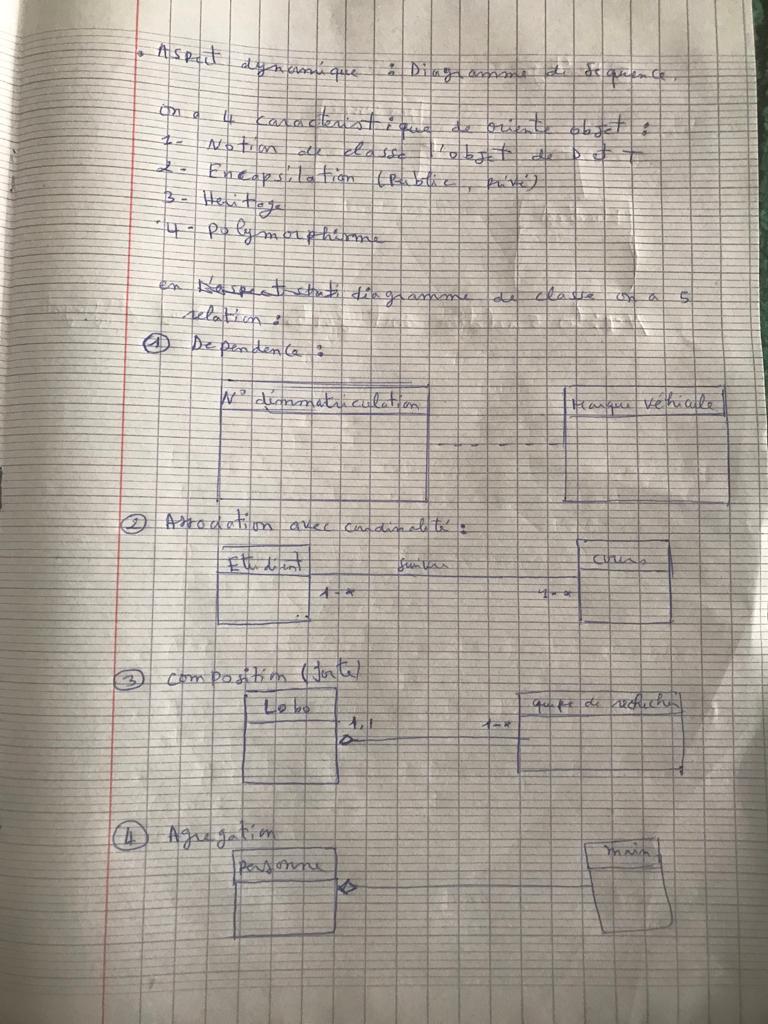 . Aspect dynamique : Diagramme de Sequence.
on a 4 caracteristique de oriente objet :
1- Notion de classe l'objet de D et T
2- Encapsilation (Public, privé)
3- Heritage
4- polymorphisme
en diagramme de classe on a 5
relation :
① Dependence :
N° dimmatriculation Marque véhicule
② Association avec cardinalité :
Etudient suivre cours
1-* 1-*
③ composition (forte)
Labo equipe de recherche
1,1 1-*
④ Agregation
personne main